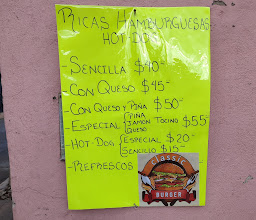 RICAS HAMBURGUESAS
HOT-DOG
-SENCILLA $40-
-CON QUESO $45-
-CON QUESO y PIÑA $50-
-ESPECIAL PIÑA JAMON TOCINO QUESO $55
-HOT-DOG ESPECIAL $20-
SENCILLO $15-
-REFRESCOS
classic
BURGER